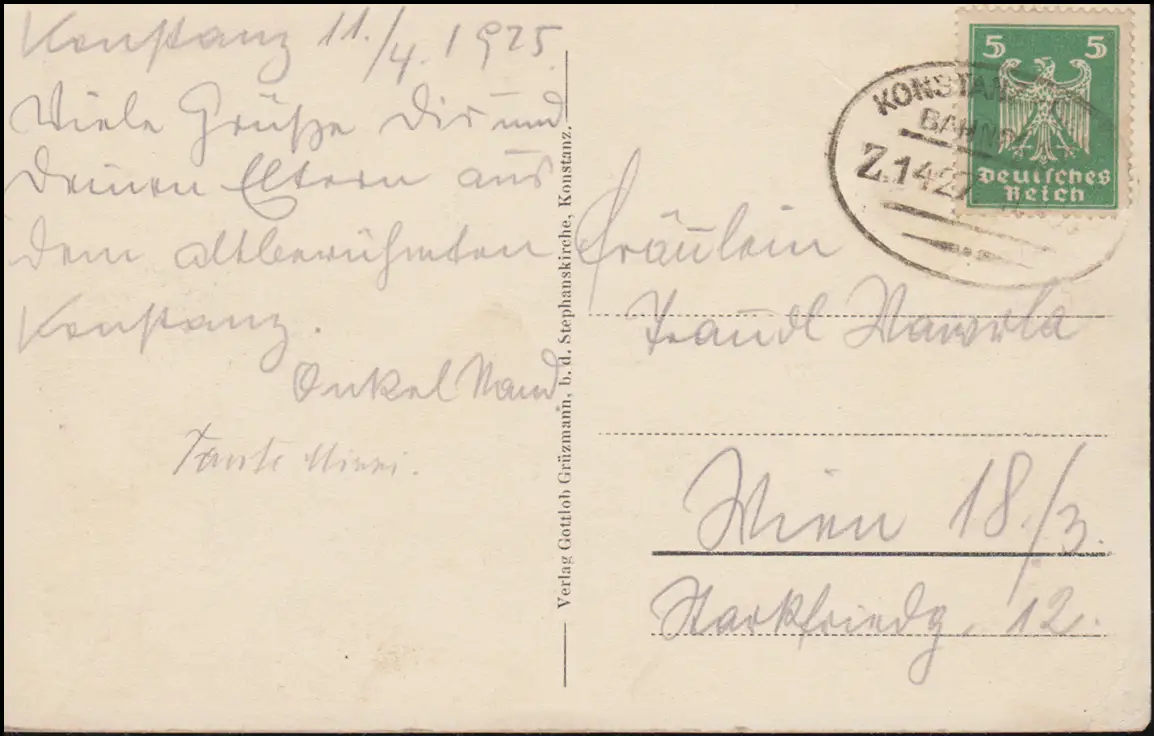 Konstanz 11./4. 1925.
Viele Grüße Dir und
Deinen Eltern aus
dem altberühmten
Konstanz.
Onkel Nand
Tante Minni.
Verlag Gottlob Grüzmann, b. d. Stephanskirche, Konstanz.
5 5
Deutsches
Reich
KONSTAN
BAHNP
Z.1427
Fräulein
Traudl Wawrla
Wien 18./3.
Starkfriedg. 12.